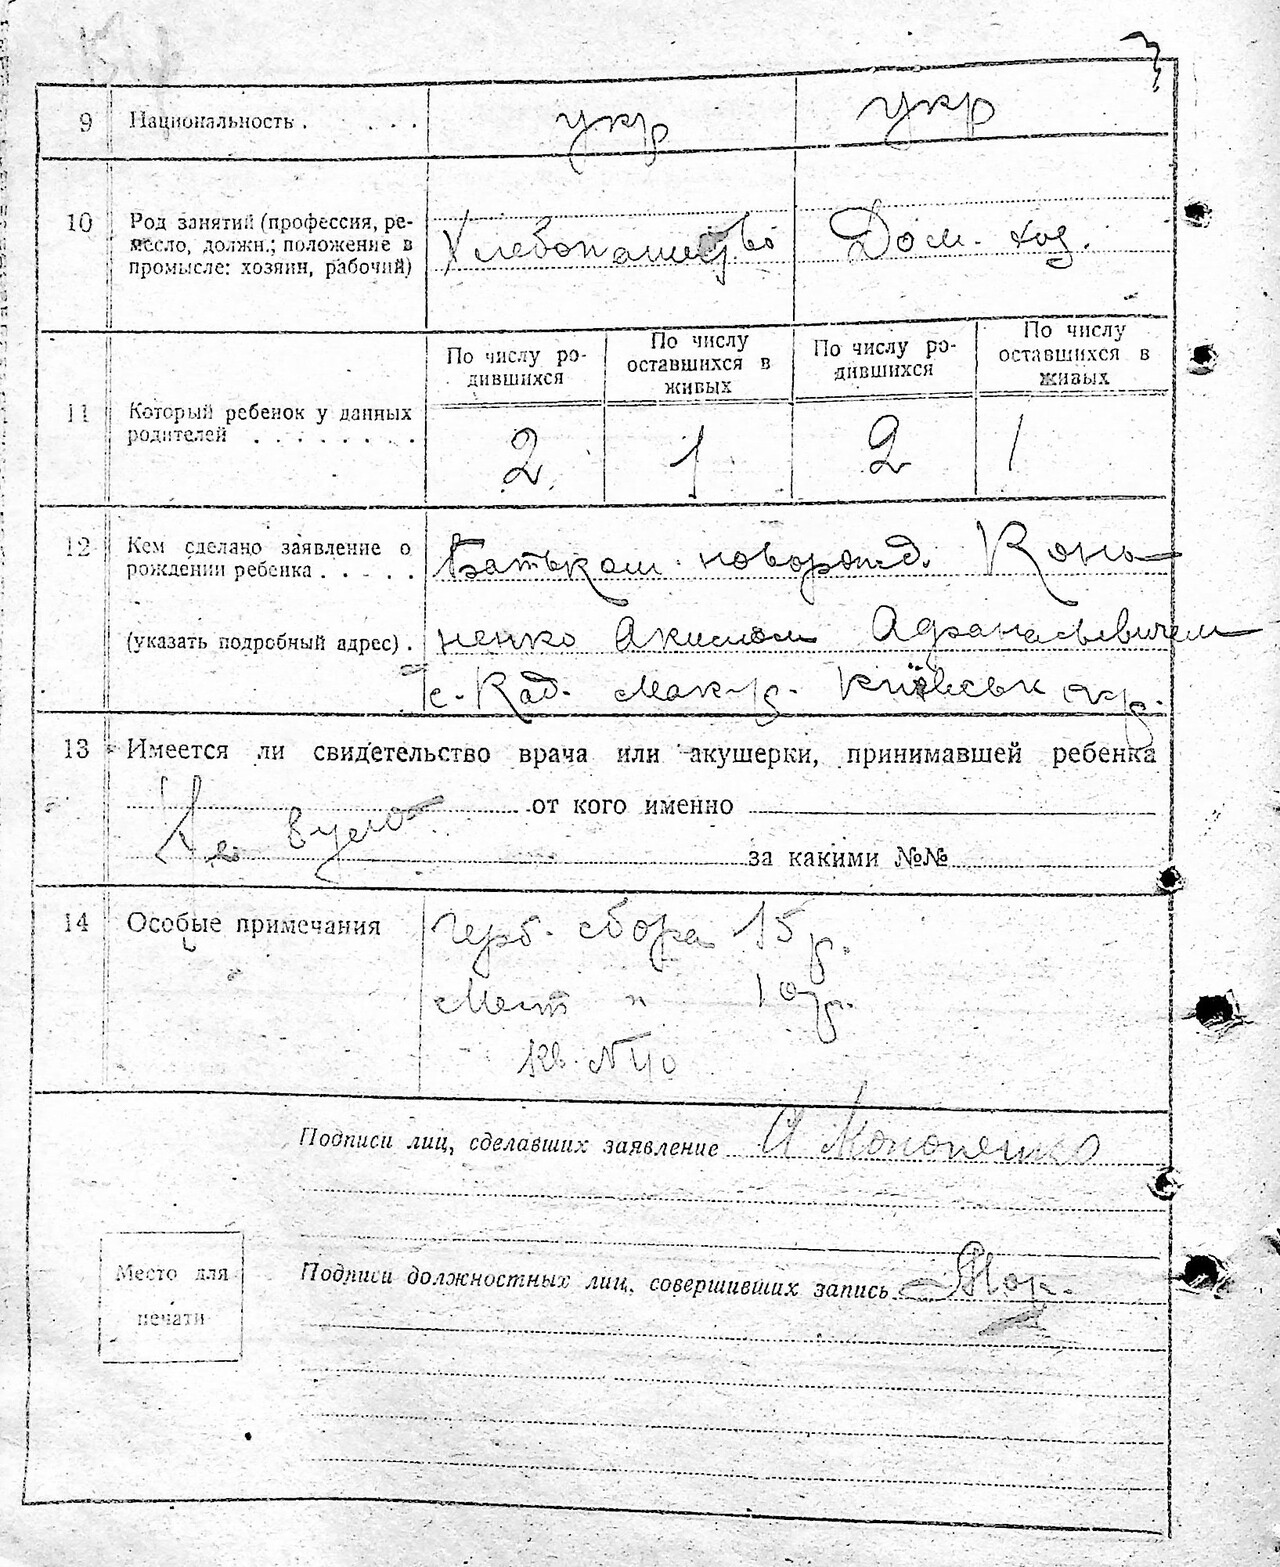 9 Национальность . . . . . укр укр
10 Род занятий (профессия, ре-
месло, должн.; положение в
промысле: хозяин, рабочий)
Хлебопашество Дом. хоз.
По числу ро-
дившихся
По числу
оставшихся в
живых
По числу ро-
дившихся
По числу
оставшихся в
живых
11 Который ребенок у данных
родителей . . . . . . . .
2 1 2 1
12 Кем сделано заявление о
рождении ребенка . . . . .
(указать подробный адрес) .
Батьком новорожд. Коно-
ненко Акимом Афанасьевичем
с. Кад. Мак-р. Київськ окр.
13 Имеется ли свидетельство врача или акушерки, принимавшей ребенка
Не от кого именно
за какими №№
14 Особые примечания
Герб. сбора 15 р.
Мест " 10 р.
Кв. №
Подписи лиц, сделавших заявление А Кононенко
Подписи должностных лиц, совершивших запись
Место для
печати